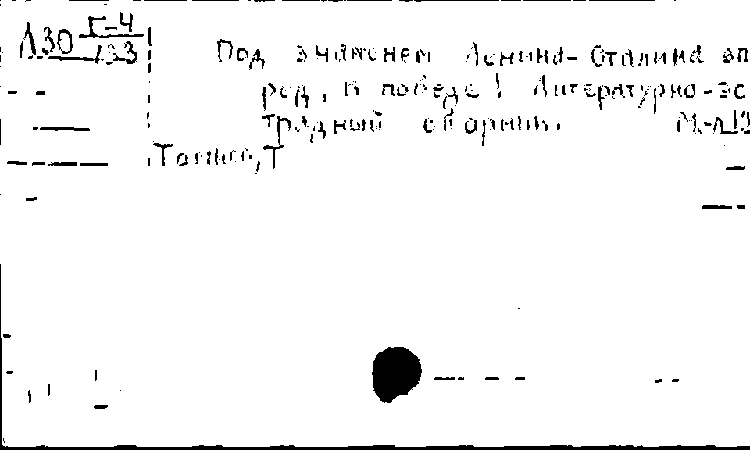 Л30 Г-4/133
Под знаменем Ленина-Сталина вп
ред, к победе! Литературно-эс
традный сборник. М.-Л